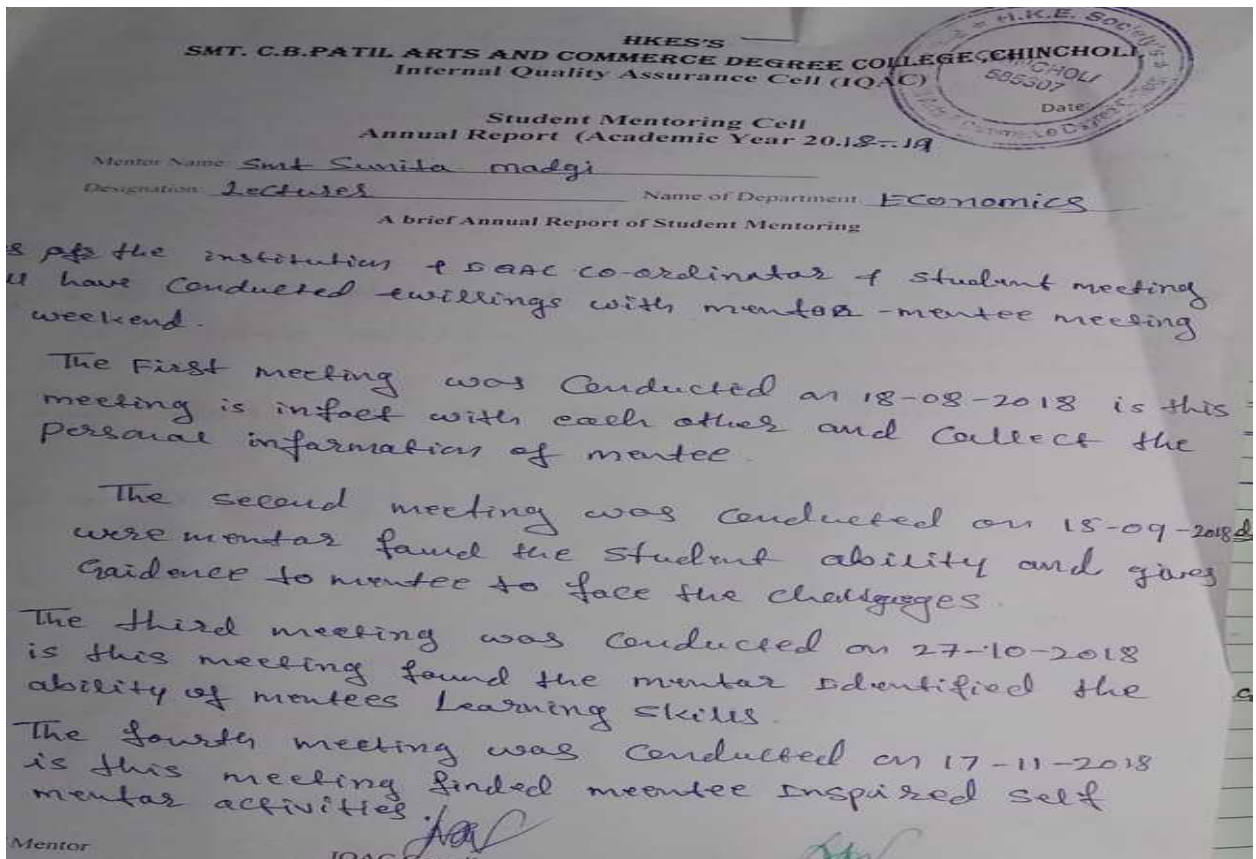 H.K.E. Society's
HKES'S
SMT. C.B.PATIL ARTS AND COMMERCE DEGREE COLLEGE, CHINCHOLI,
Internal Quality Assurance Cell (IQAC)
CHINCHOLI
585307
Date:
Student Mentoring Cell
Annual Report (Academic Year 2018-19
Mentor Name: Smt Sunita madgi
Designation: Lectures Name of Department Economics
A brief Annual Report of Student Mentoring
the institution & co-ordinatar & student meeting
have Conducted with mentor-mentee meeting
weekend.
The First meeting was Conducted an 18-08-2018 is this
meeting is infact with each other and Collect the
personal information of mentee.
The second meeting was conducted on 15-09-2018
were mentar found the student ability and gives
Gaidence to mentee to face the
The third meeting was conducted on 27-10-2018
is this meeting found the mentar Identified the
ability of mentees Learning skills.
The fourth meeting was conducted on 17-11-2018
is this meeting finded meentee Inspired self
mentar activities.
Mentor
IQAC